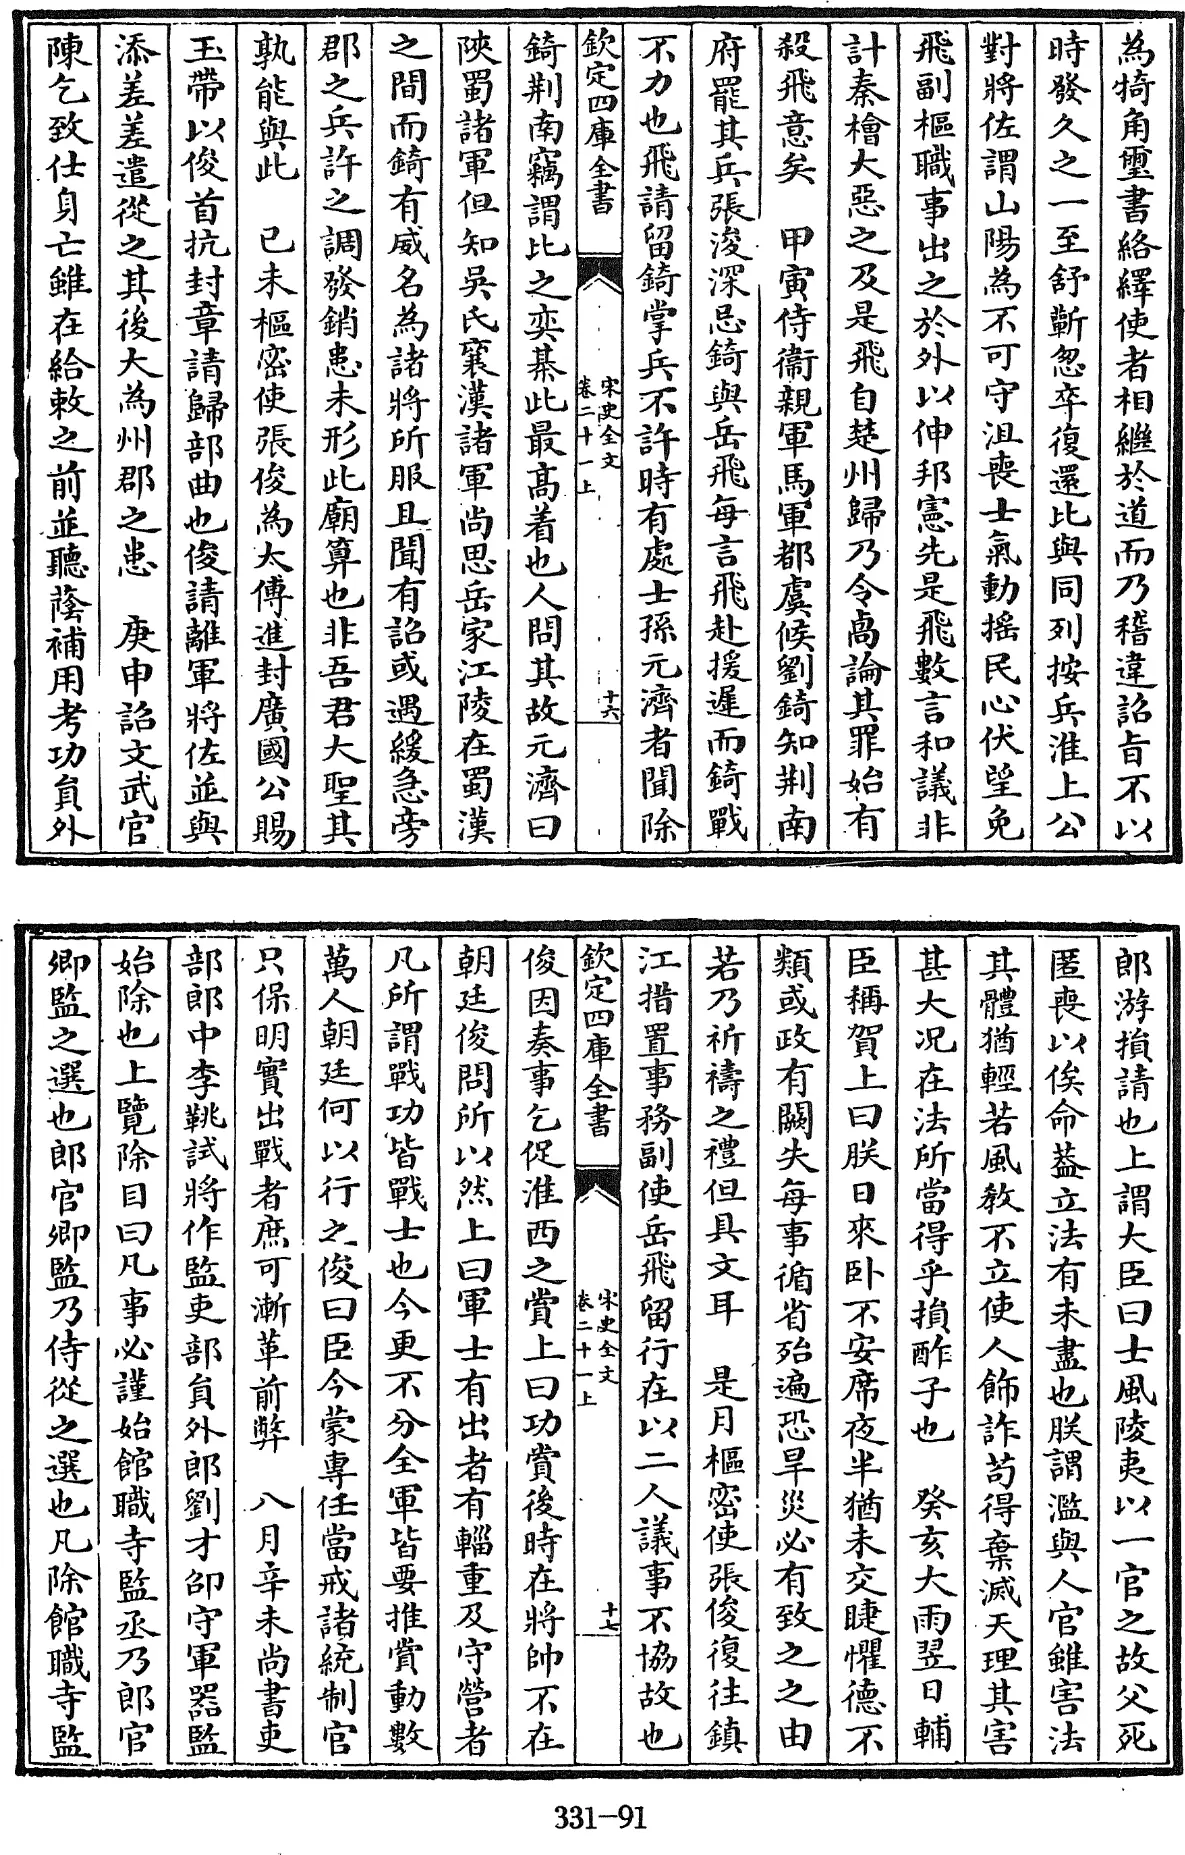 為犄角璽書絡繹使者相繼於道而乃稽違詔旨不以
時發久之一至舒蘄忽卒復還比與同列按兵淮上公
對將佐謂山陽為不可守沮喪士氣動摇民心伏望免
飛副樞職事出之於外以伸邦憲先是飛數言和議非
計秦檜大惡之及是飛自楚州歸乃令卨論其罪始有
殺飛意矣　甲寅侍衞親軍馬軍都虞候劉錡知荆南
府罷其兵張浚深忌錡與岳飛每言飛赴援遲而錡戰
不力也飛請留錡掌兵不許時有處士孫元濟者聞除
欽定四庫全書
宋史全文
卷二十一上
十六
錡荆南竊謂比之奕棊此最高着也人問其故元濟曰
陜蜀諸軍但知吳氏襄漢諸軍尚思岳家江陵在蜀漢
之間而錡有威名為諸將所服且聞有詔或遇緩急旁
郡之兵許之調發銷患未形此廟算也非吾君大聖其
孰能與此　己未樞密使張俊為太傅進封廣國公賜
玉帶以俊首抗封章請歸部曲也俊請離軍將佐並與
添差差遣從之其後大為州郡之患　庚申詔文武官
陳乞致仕身亡雖在給敕之前並聽蔭補用考功員外
郎游損請也上謂大臣曰士風陵夷以一官之故父死
匿喪以俟命葢立法有未盡也朕謂濫與人官雖害法
其體猶輕若風教不立使人飾詐苟得棄滅天理其害
甚大况在法所當得乎損酢子也　癸亥大雨翌日輔
臣稱賀上曰朕日來卧不安席夜半猶未交睫懼德不
類或政有闕失每事循省殆遍恐旱災必有致之之由
若乃祈禱之禮但具文耳　是月樞密使張俊復往鎮
江措置事務副使岳飛留行在以二人議事不協故也
欽定四庫全書
宋史全文
卷二十一上
十七
俊因奏事乞促淮西之賞上曰功賞後時在將帥不在
朝廷俊問所以然上曰軍士有出者有輜重及守營者
凡所謂戰功皆戰士也今更不分全軍皆要推賞動數
萬人朝廷何以行之俊曰臣今蒙專任當戒諸統制官
只保明實出戰者庶可漸革前弊　八月辛未尚書吏
部郎中李鞉試將作監吏部員外郎劉才卲守軍器監
始除也上覽除目曰凡事必謹始館職寺監丞乃郎官
卿監之選也郎官卿監乃侍從之選也凡除館職寺監
331-91